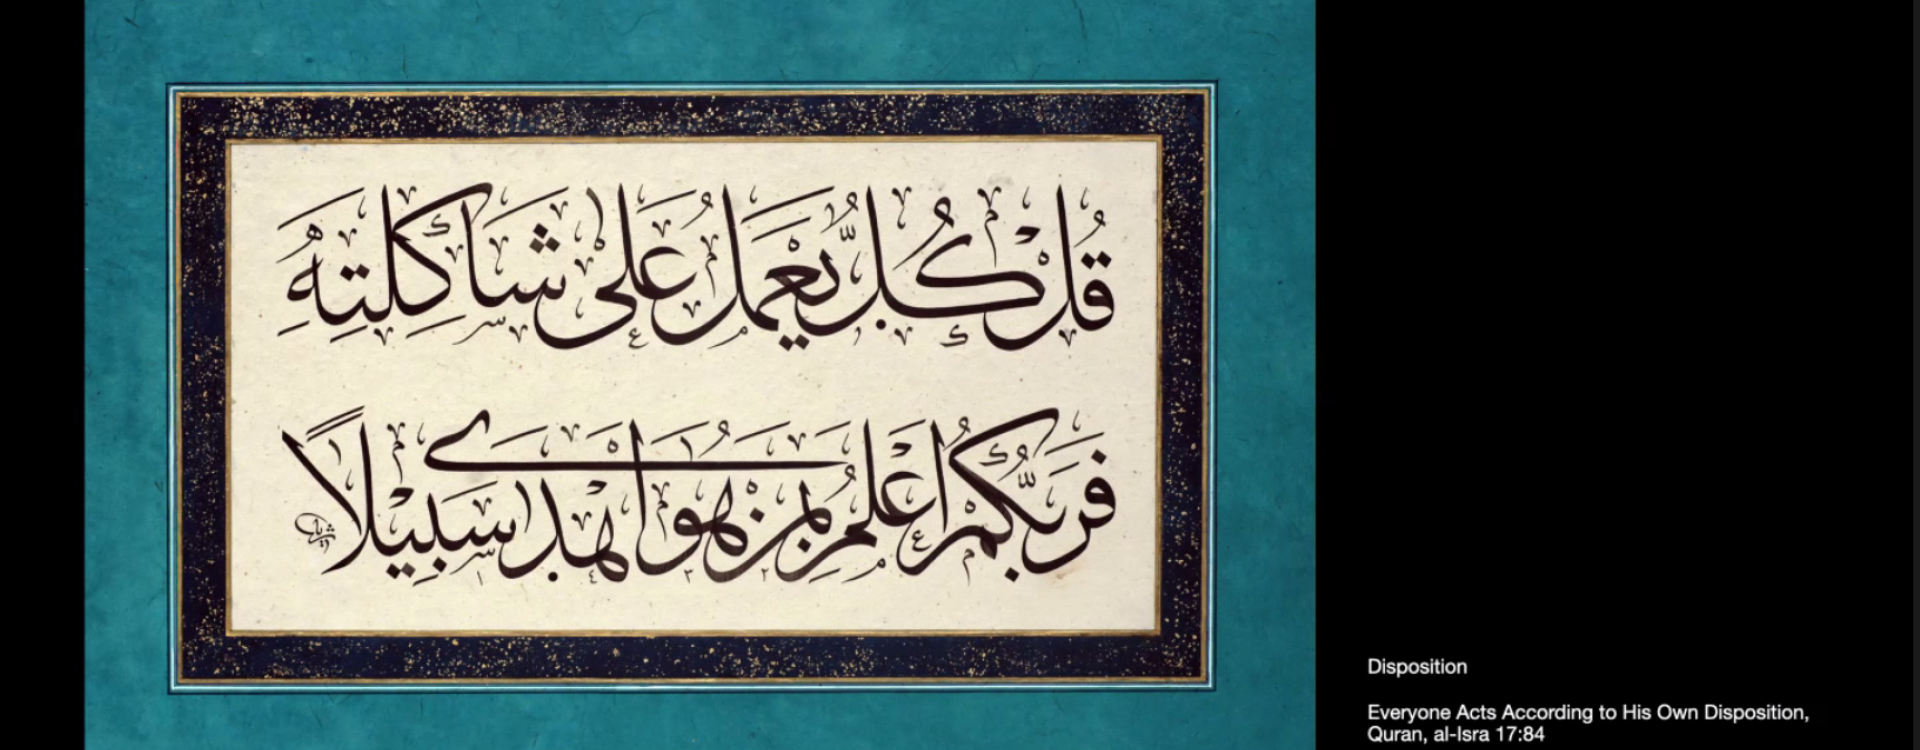 قُلْ كُلٌّ يَعْمَلُ عَلَىٰ شَاكِلَتِهِ
فَرَبُّكُمْ أَعْلَمُ بِمَنْ هُوَ أَهْدَىٰ سَبِيلًا
Disposition
Everyone Acts According to His Own Disposition,
Quran, al-Isra 17:84